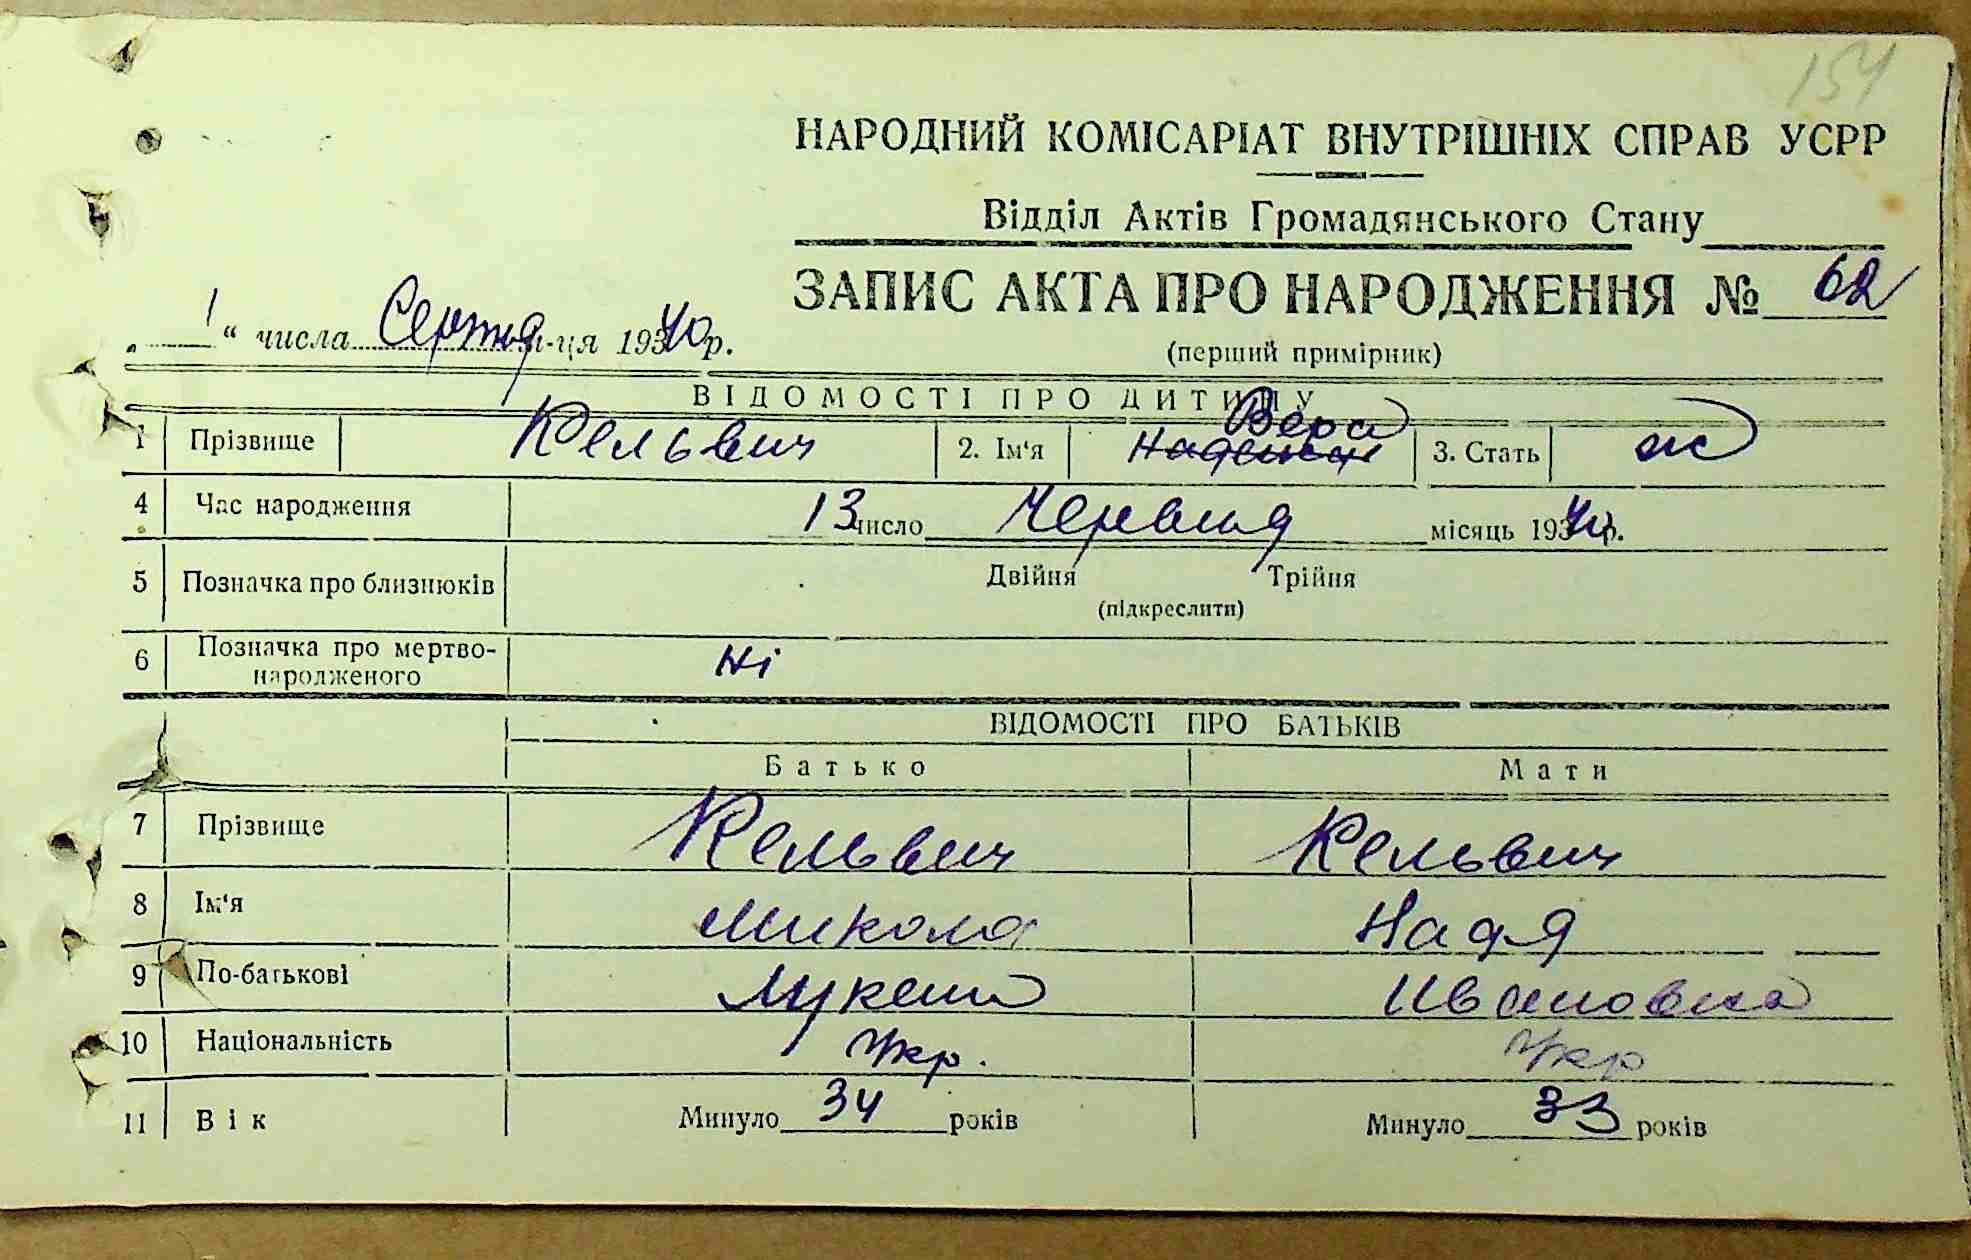 154
НАРОДНИЙ КОМІСАРІАТ ВНУТРІШНІХ СПРАВ УСРР
Відділ Актів Громадянського Стану
ЗАПИС АКТА ПРО НАРОДЖЕННЯ № 62
„ 1 “ числа Серпня м-ця 1940 р.
(перший примірник)
ВІДОМОСТІ ПРО ДИТИНУ
1 Прізвище Кельвич 2. Ім'я Вера 3. Стать ж
4 Час народження 13 число Червня місяць 1940 р.
5 Позначка про близнюків Двійня Трійня
(підкреслити)
6 Позначка про мертво-
народженого Ні
ВІДОМОСТІ ПРО БАТЬКІВ
Батько Мати
7 Прізвище Кельвич Кельвич
8 Ім'я Микола Надя
9 По-батькові Ивановна
10 Національність Укр. Укр
11 Вік Минуло 34 років Минуло 33 років